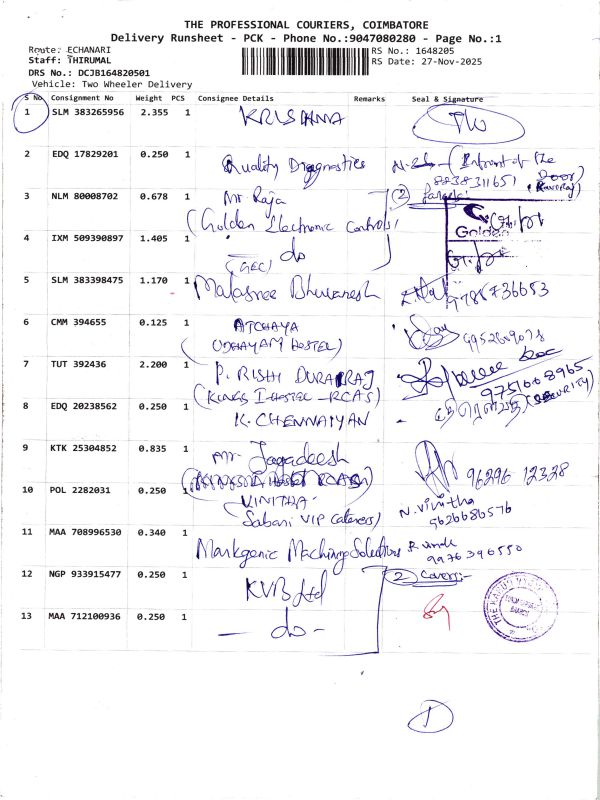 THE PROFESSIONAL COURIERS, COIMBATORE
Delivery Runsheet - PCK - Phone No.:9047080280 - Page No.:1
Route: ECHANARI RS No.: 1648205
Staff: THIRUMAL RS Date: 27-Nov-2025
DRS No.: DCJB164820501
Vehicle: Two Wheeler Delivery
S No Consignment No Weight PCS Consignee Details Remarks Seal & Signature
1 SLM 383265956 2.355 1 KRISHNA
2 EDQ 17829201 0.250 1 Quality Diagnostics
Infront of the Door
8838311651
3 NLM 80008702 0.678 1 Mr. Raja (2)
(Golden Electronic Controls)
Golden
4 IXM 509390897 1.405 1 do
(GEC)
5 SLM 383398475 1.170 1 Bhuvanesh
9788736653
6 CMM 394655 0.125 1 ATCHAYA
(UDHAYAM HOSTEL)
9952609078
7 TUT 392436 2.200 1 P. RISHI DURAIRAJ
(KINGS HOSTEL - RCAS)
9751008965
(SECURITY)
8 EDQ 20238562 0.250 1 K. CHENNAIYAN
9 KTK 25304852 0.835 1 Mr. Jagadeesh
96296 12328
10 POL 2282031 0.250 1 VINITHA
(Sabari VIP Caterers)
N. Vinitha
9626686576
11 MAA 708996530 0.340 1 Markgenic Machining Solutions
9976396550
12 NGP 933915477 0.250 1 KVB Ltd (2) Covers:-
13 MAA 712100936 0.250 1 - do -
1